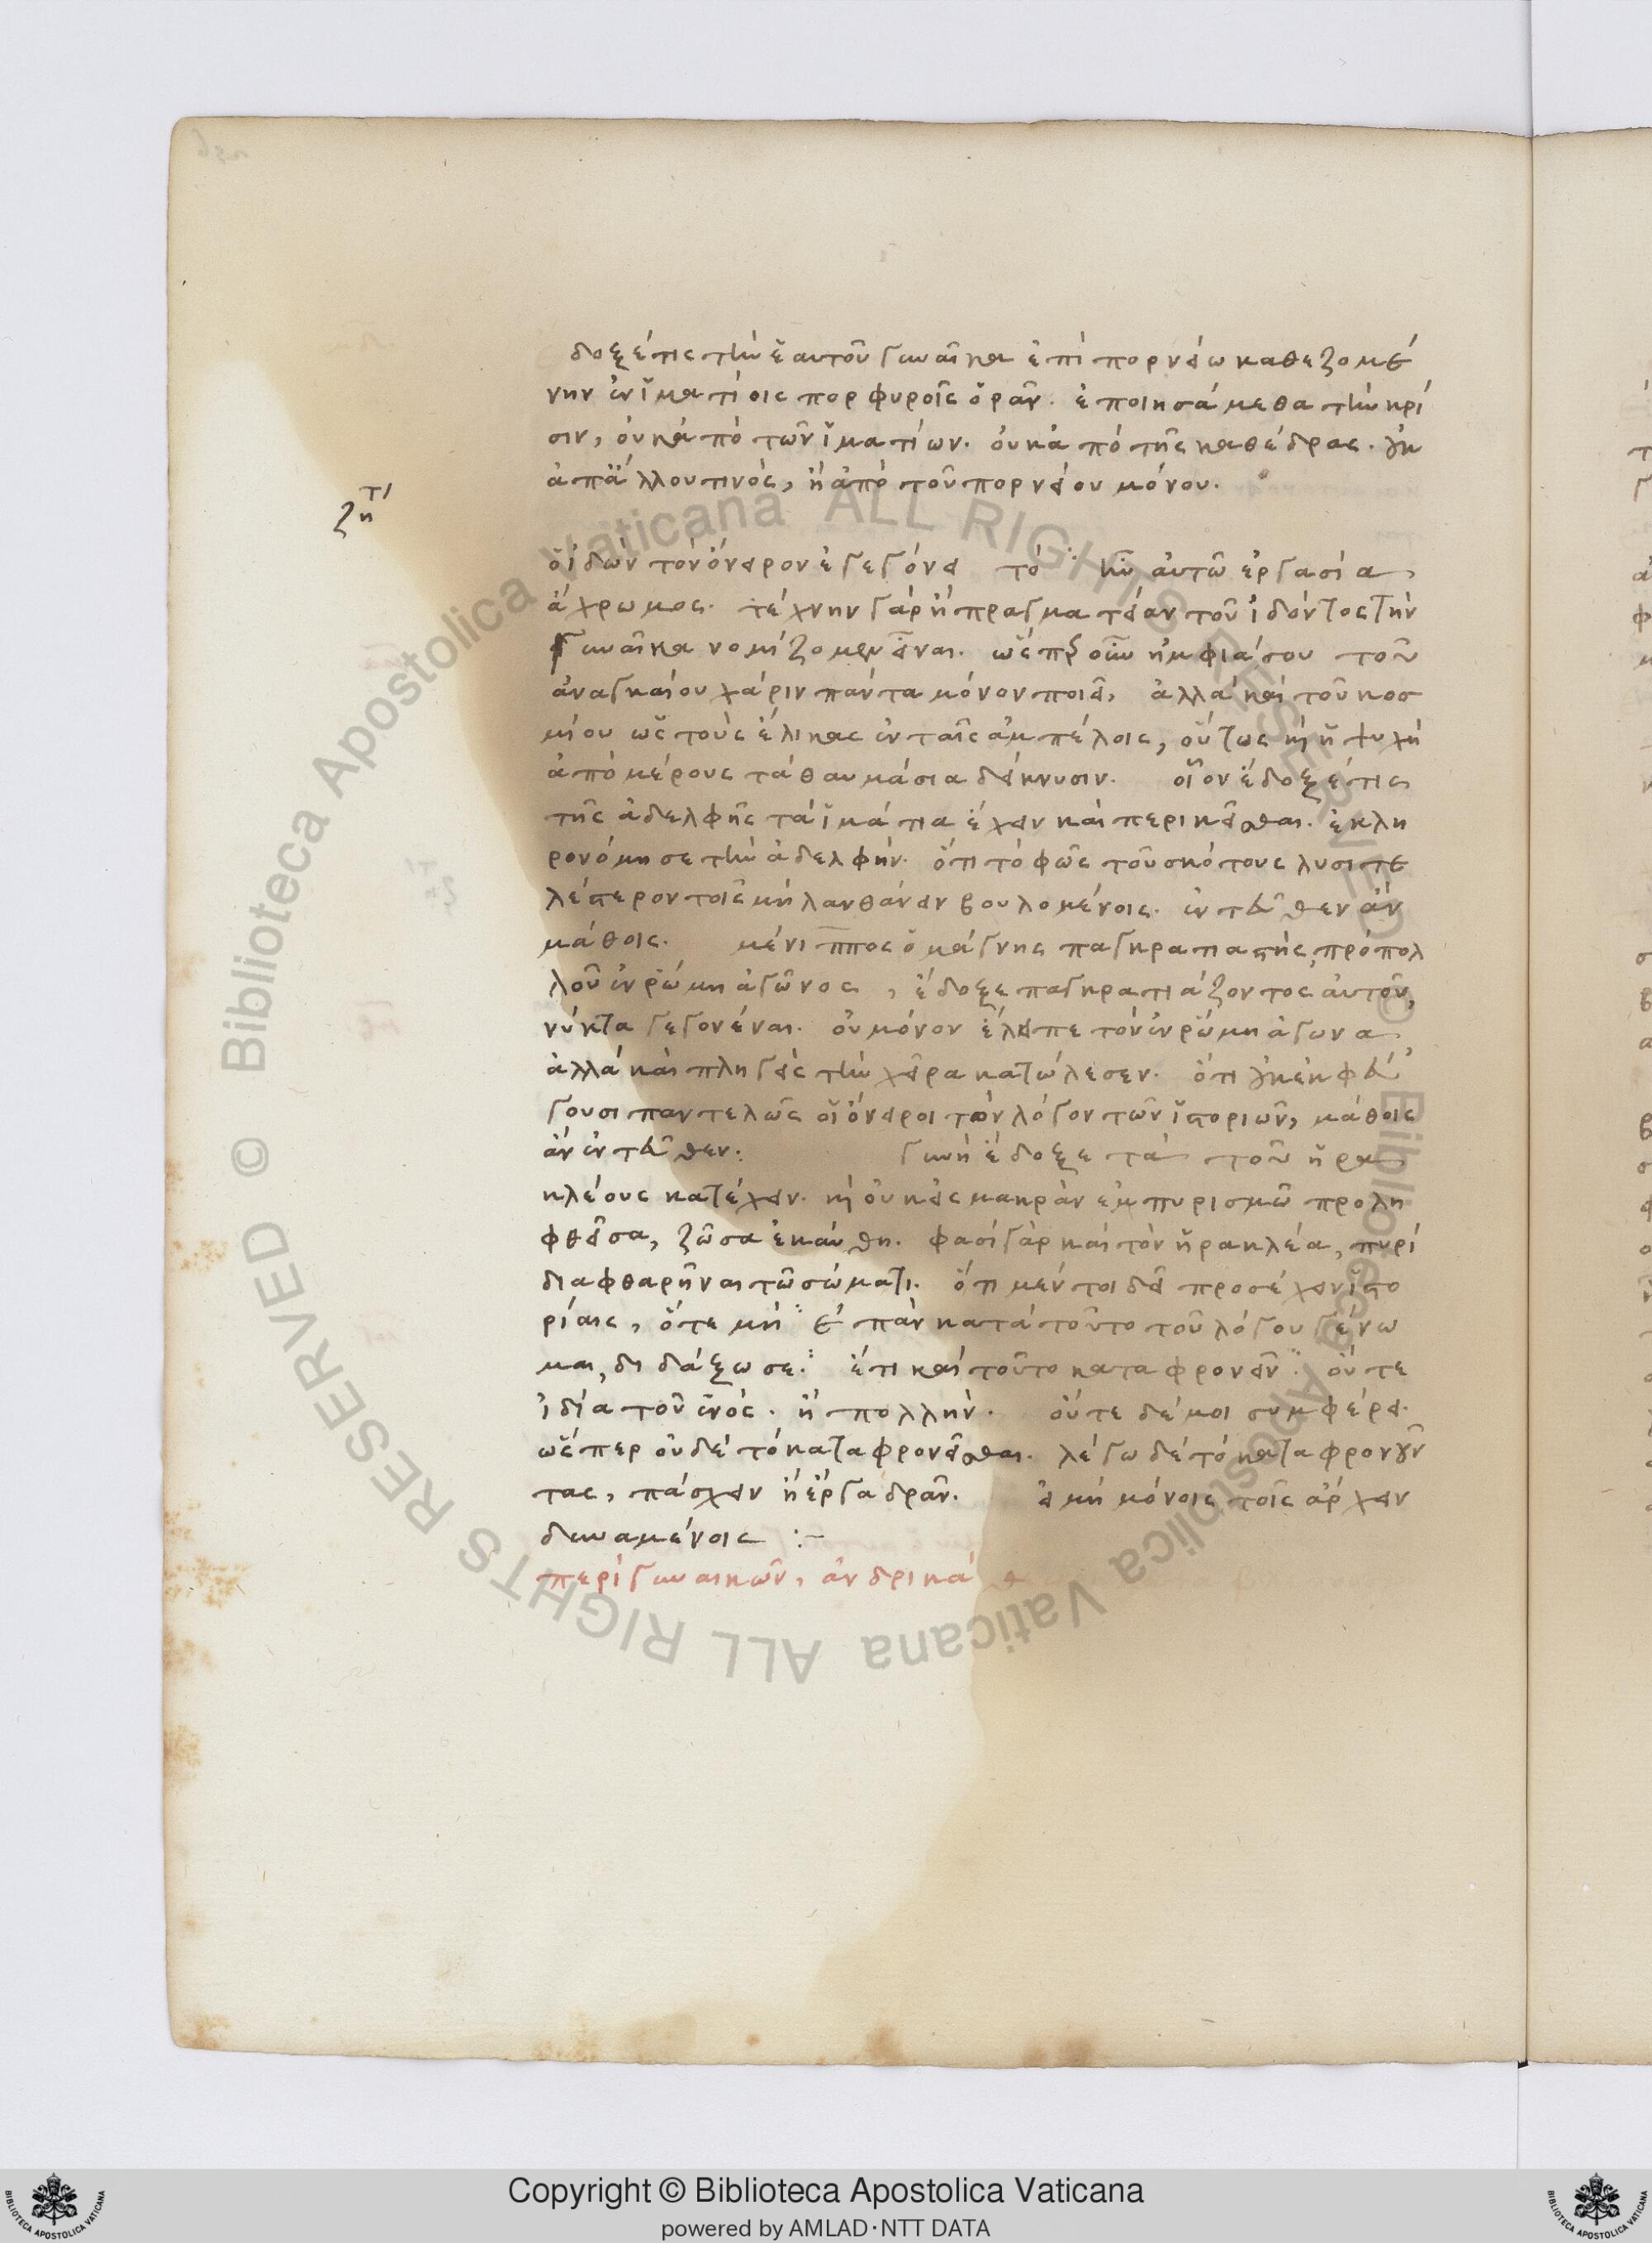 δοξέ τις τὴν ἑαυτοῦ γυναῖκα ἐπὶ πορνείω καθεζομέ
νην ἐν ἱματίοις πορφυροῖς ὁρᾶν. ἐποιησάμεθα τὴν κρί
σιν, οὐκ ἀπὸ τῶν ἱματίων. οὐκ ἀπὸ τῆς καθέδρας. οὐκ
ἀπ' ἄλλου τινός, ἢ ἀπὸ τοῦ πορνείου μόνου.
ζη τι
ὁ ἰδὼν τὸν ὄνειρον ἐγεγόνει τό ἦν αὐτῶ ἐργασία
ἄχρωμος. τέχνην γὰρ ἢ πραγματείαν τοῦ ἰδόντος τὴν
γυναῖκα νομίζομεν εἶναι. ὥσπερ οὖν ἡ φύσις οὐ τοῦ
ἀναγκαίου χάριν πάντα μόνον ποιεῖ, ἀλλὰ καὶ τοῦ κοσ
μίου ὡς τοὺς ἕλικας ἐν ταῖς ἀμπέλοις, οὕτως καὶ ἡ ψυχὴ
ἀπὸ μέρους τὰ θαυμάσια δείκνυσιν. οἷον ἔδοξέ τις
τῆς ἀδελφῆς τὰ ἱμάτια ἔχειν καὶ περικεῖσθαι. ἐκλη
ρονόμησε τὴν ἀδελφήν. ὅτι τὸ φῶς τοῦ σκότους λυσιτε
λέστερον τοῖς μὴ λανθάνειν βουλομένοις. ἐντεῦθεν ἂν
μάθοις. μένιππος ὁ μάγνης παγκρατιαστής, πρὸ πολ
λοῦ ἐν ῥώμη ἀγῶνος, ἔδοξε παγκρατιάζοντος αὐτοῦ,
νύκτα γεγονέναι. οὐ μόνον ἔλειπε τὸν ἐν ῥώμη ἀγωνα
ἀλλὰ καὶ πληγεὶς τὴν χεῖρα κατώλεσεν. ὅτι οὐκ ἐκφεύ
γουσι παντελῶς οἱ ὄνειροι τὸν λόγον τῶν ἱστοριῶν, μάθοις
ἂν ἐντεῦθεν. γυνὴ ἔδοξε τὰ τοῦ ἡρα
κλέους κατέχειν. καὶ οὐκ εἰς μακρὰν ἐμπυρισμῶ προλη
φθεῖσα, ζῶσα ἐκαύθη. φασὶ γὰρ καὶ τὸν ἡρακλέα, πυρὶ
διαφθαρῆναι τῶ σώματι. ὅτι μέντοι δεῖ προσέχειν ἱστο
ρίαις, ὅτε μὴ ἐπὰν κατὰ τοῦτο τοῦ λόγου γένω
μαι, διδάξω σε. ἔτι καὶ τοῦτο καταφρονεῖν οὔτε
ἰδία τοῦ ἑνός. ἢ πολλὴν. οὔτε δέ μοι συμφέρει.
ὥσπερ οὐδὲ τὸ καταφρονεῖσθαι. λέγω δὲ τὸ καταφρονοῦν
τας, πάσχειν ἢ ἔργα δρᾶν. εἰ μὴ μόνοις τοῖς ἄρχειν
δυναμένοις :~
περὶ γυναικῶν, ἀνδρικά